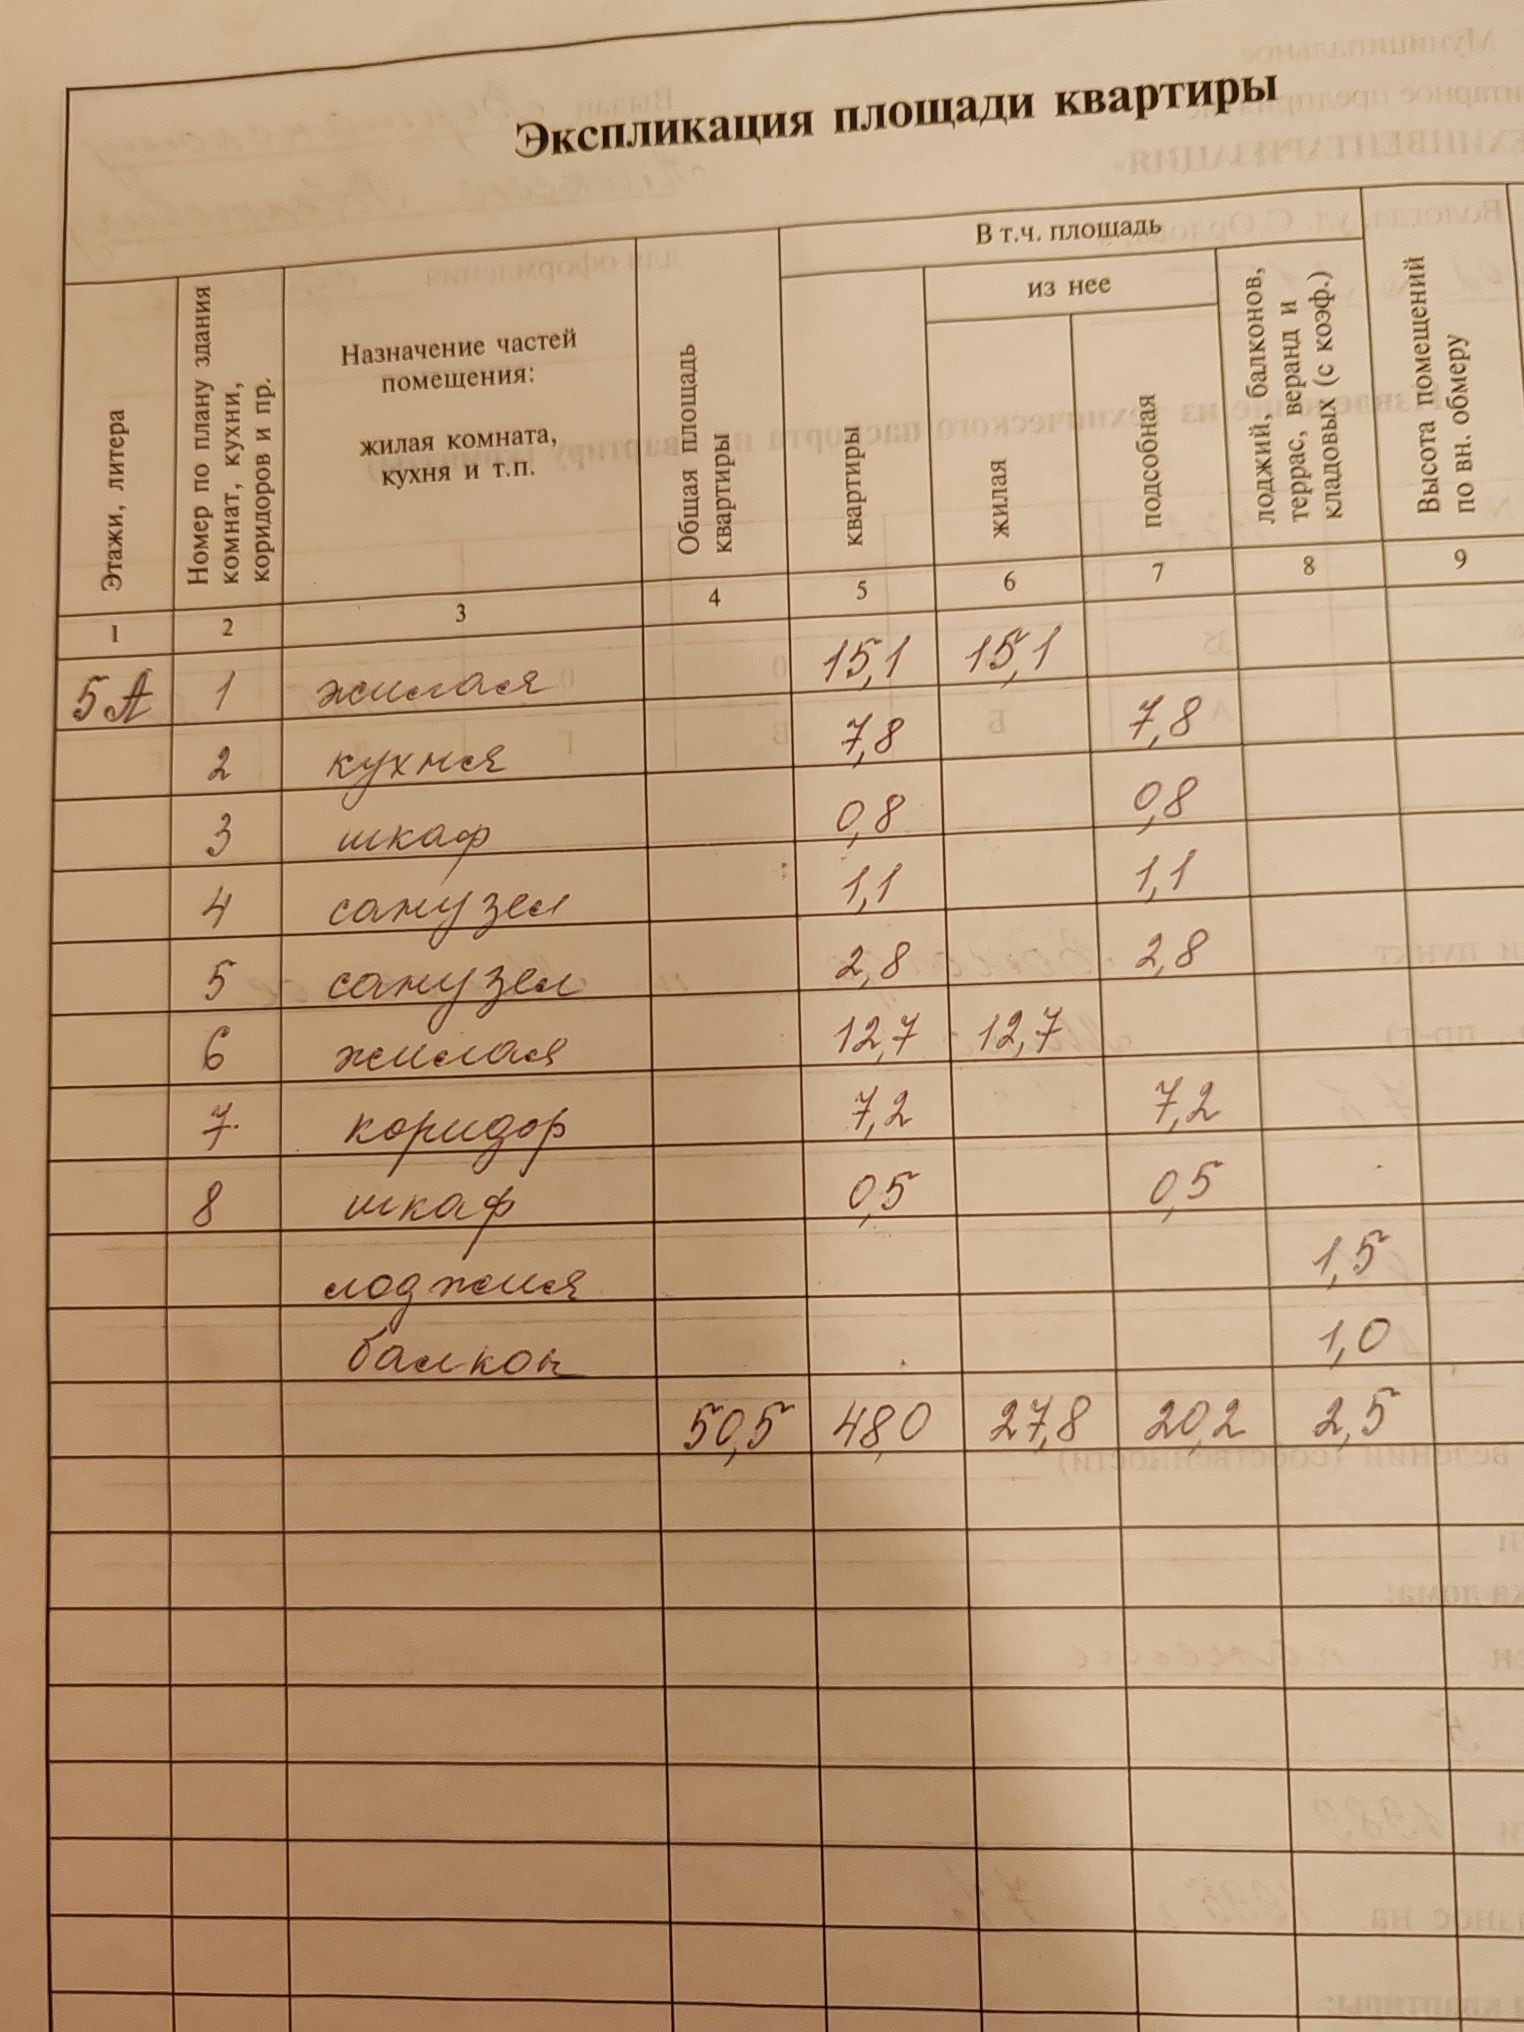 Экспликация площади квартиры
Этажи, литера
Номер по плану здания
комнат, кухни,
коридоров и пр.
Назначение частей
помещения:
жилая комната,
кухня и т.п.
Общая площадь
квартиры
В т.ч. площадь
квартиры
из нее
жилая
подсобная
лоджий, балконов,
террас, веранд и
кладовых (с коэф.)
Высота помещений
по вн. обмеру
1 2 3 4 5 6 7 8 9
5А 1 жилая 15,1 15,1
2 кухня 7,8 7,8
3 шкаф 0,8 0,8
4 санузел 1,1 1,1
5 санузел 2,8 2,8
6 жилая 12,7 12,7
7 коридор 7,2 7,2
8 шкаф 0,5 0,5
лоджия 1,5
балкон 1,0
50,5 48,0 27,8 20,2 2,5